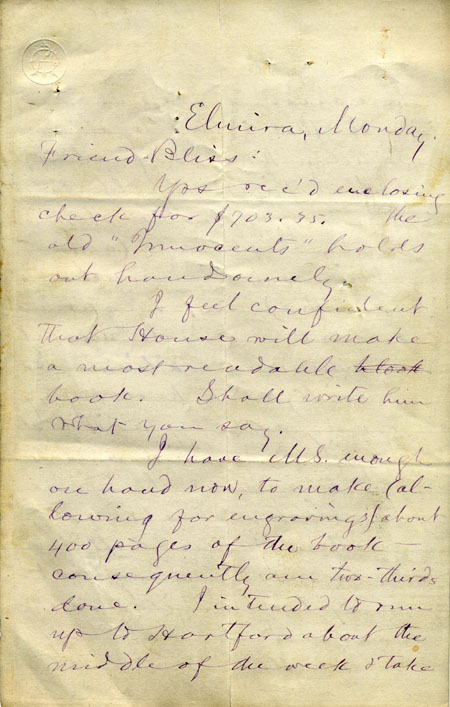 Elmira, Monday
Friend Bliss:
Yrs rec'd enclosing
check for $703.35. The
old "Innocents" holds
out handsomely.
I feel confident
that House will make
a most readable book
book. Shall write him
what you say.
I have MS. enough
on hand now, to make (al-
lowing for engravings) about
400 pages of the book —
consequently am two-thirds
done. I intended to run
up to Hartford about the
middle of the week & take